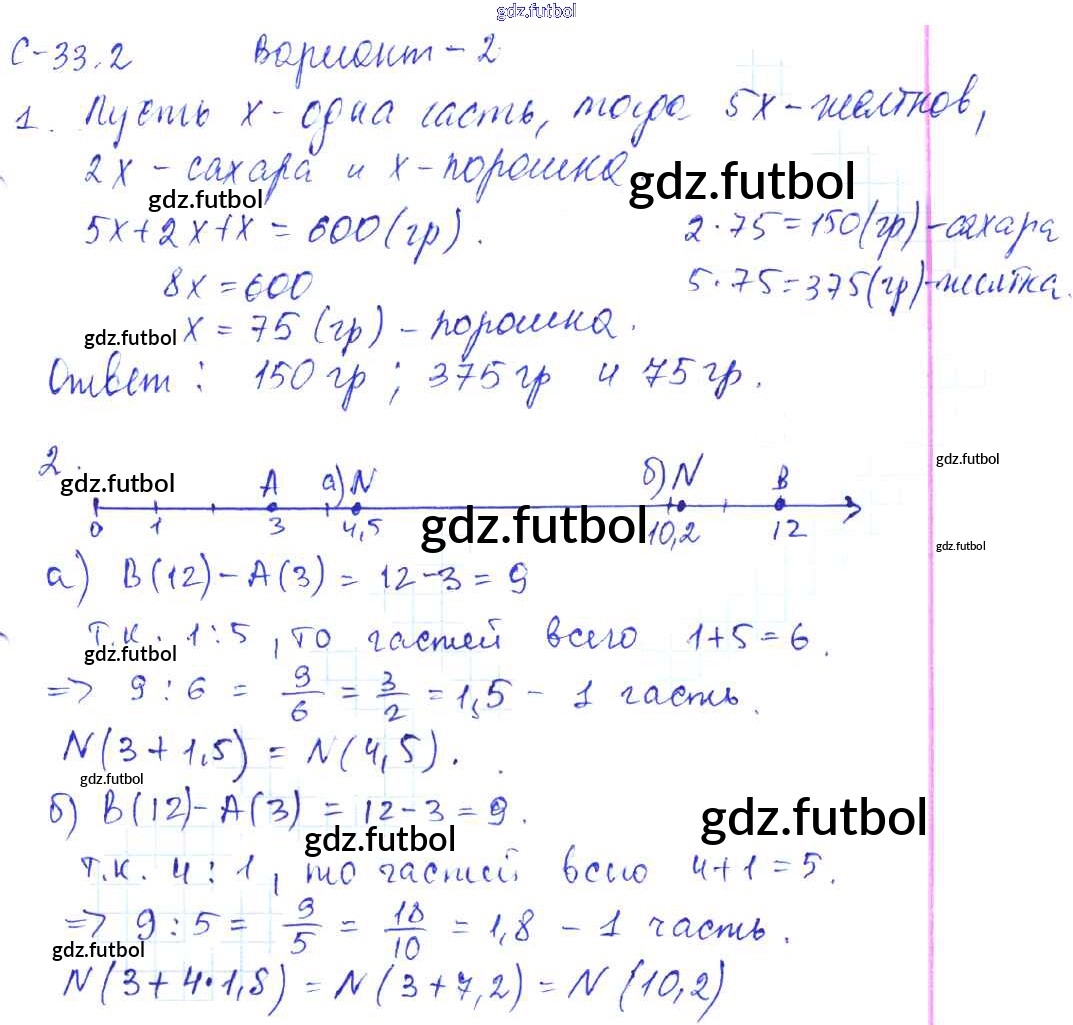 gdz.futbol
С-33.2 Вариант-2
1. Пусть x - одна часть, тогда 5x - желтков,
2x - сахара и x - порошка.
gdz.futbol
gdz.futbol
5x+2x+x = 600 (гр). 2·75=150(гр)-сахара
8x = 600 5·75=375(гр)-желтка.
gdz.futbol x = 75 (гр) - порошка.
Ответ: 150 гр; 375 гр и 75 гр.
2.
gdz.futbol A а) N б) N B gdz.futbol
0 1 3 4,5 gdz.futbol 10,2 12 gdz.futbol
а) B(12) - A(3) = 12-3 = 9
т.к. 1:5, то частей всего 1+5=6.
gdz.futbol
=> 9:6 = 9/6 = 3/2 = 1,5 - 1 часть.
N(3+1,5) = N(4,5).
gdz.futbol
б) B(12) - A(3) = 12-3 = 9. gdz.futbol
gdz.futbol
т.к. 4:1, то частей всего 4+1=5.
=> 9:5 = 9/5 = 18/10 = 1,8 - 1 часть.
gdz.futbol
N(3+4·1,8) = N(3+7,2) = N(10,2)